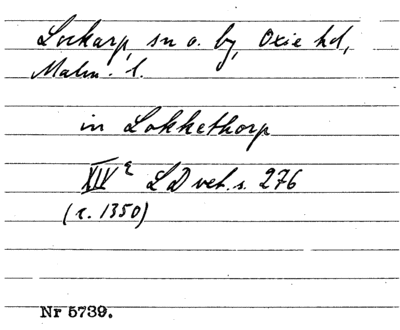 Lockarp, sn o. by, Oxie hd,
Malm. l.
in Lokkethorp
XIV e LD vet. s. 276
(c. 1350)
Nr 5739.